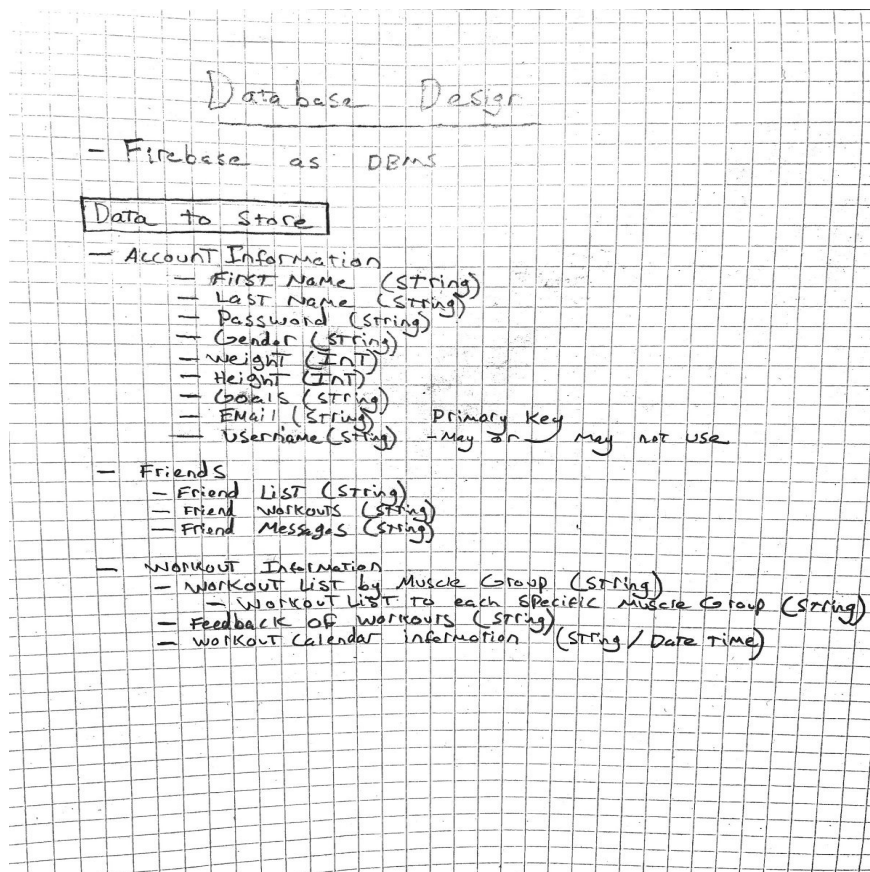 Database Design
- Firebase as DBMS
Data to Store
- Account Information
- First Name (String)
- Last Name (String)
- Password (String)
- Gender (String)
- Weight (Int)
- Height (Int)
- Goals (String)
- Email (String) Primary Key
- Username (String) - May or may not use
- Friends
- Friend List (String)
- Friend Workouts (String)
- Friend Messages (String)
- Workout Information
- Workout List by Muscle Group (String)
- Workout List to each specific Muscle Group (String)
- Feedback of workouts (String)
- Workout Calendar information (String / Date Time)